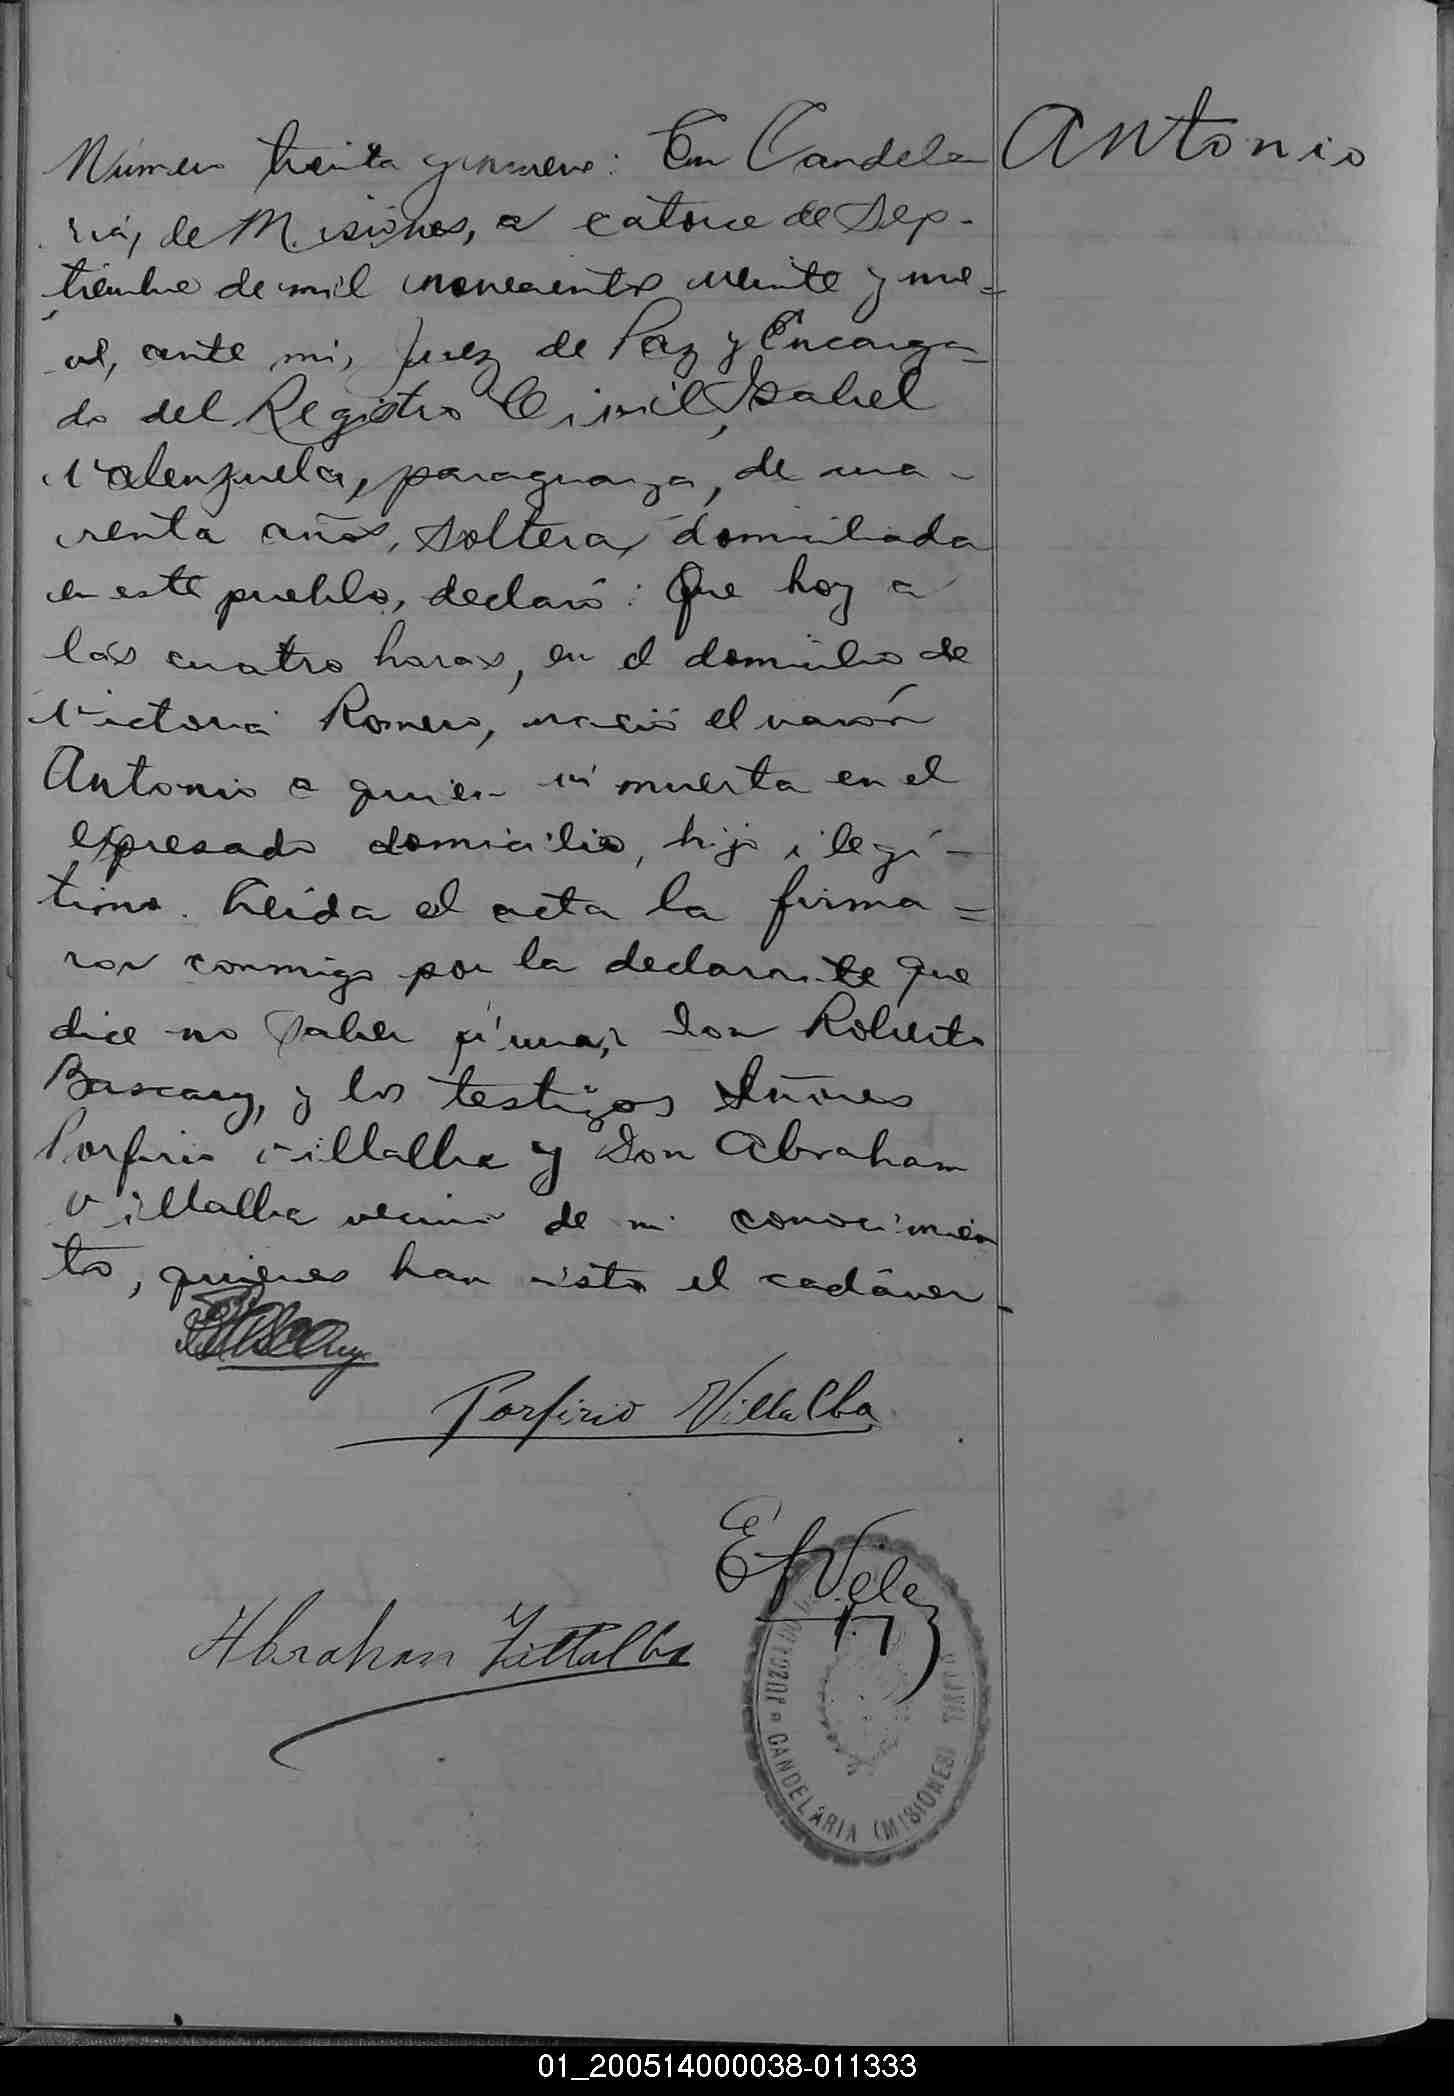 Antonio
Número treinta y nueve: En Candela
ria, de Misiones, a catorce de Sep-
tiembre de mil novecientos veinte y nue-
ve, ante mi, Juez de Paz y Encarga-
do del Registro Civil, Isabel
Valenzuela, paraguaya, de cua-
renta años, soltera, domiciliada
en este pueblo, declaró: Que hoy a
las cuatro horas, en el domicilio de
Victoria Romero, nació el varón
Antonio a quien vi muerta en el
expresado domicilio, hijo ilegí-
timo. Leida el acta la firma-
ron conmigo por la declarante que
dice no saber firmar, Don Roberto
Bascary, y los testigos Señores
Porfirio Villalba y Don Abraham
Villalba vecinos de mi conocimien
to, quienes han visto el cadáver-
Bascary
Porfirio Villalba
E. Velez
Abraham Villalba
JUZGADO
CANDELARIA (MISIONES)
01_200514000038-011333